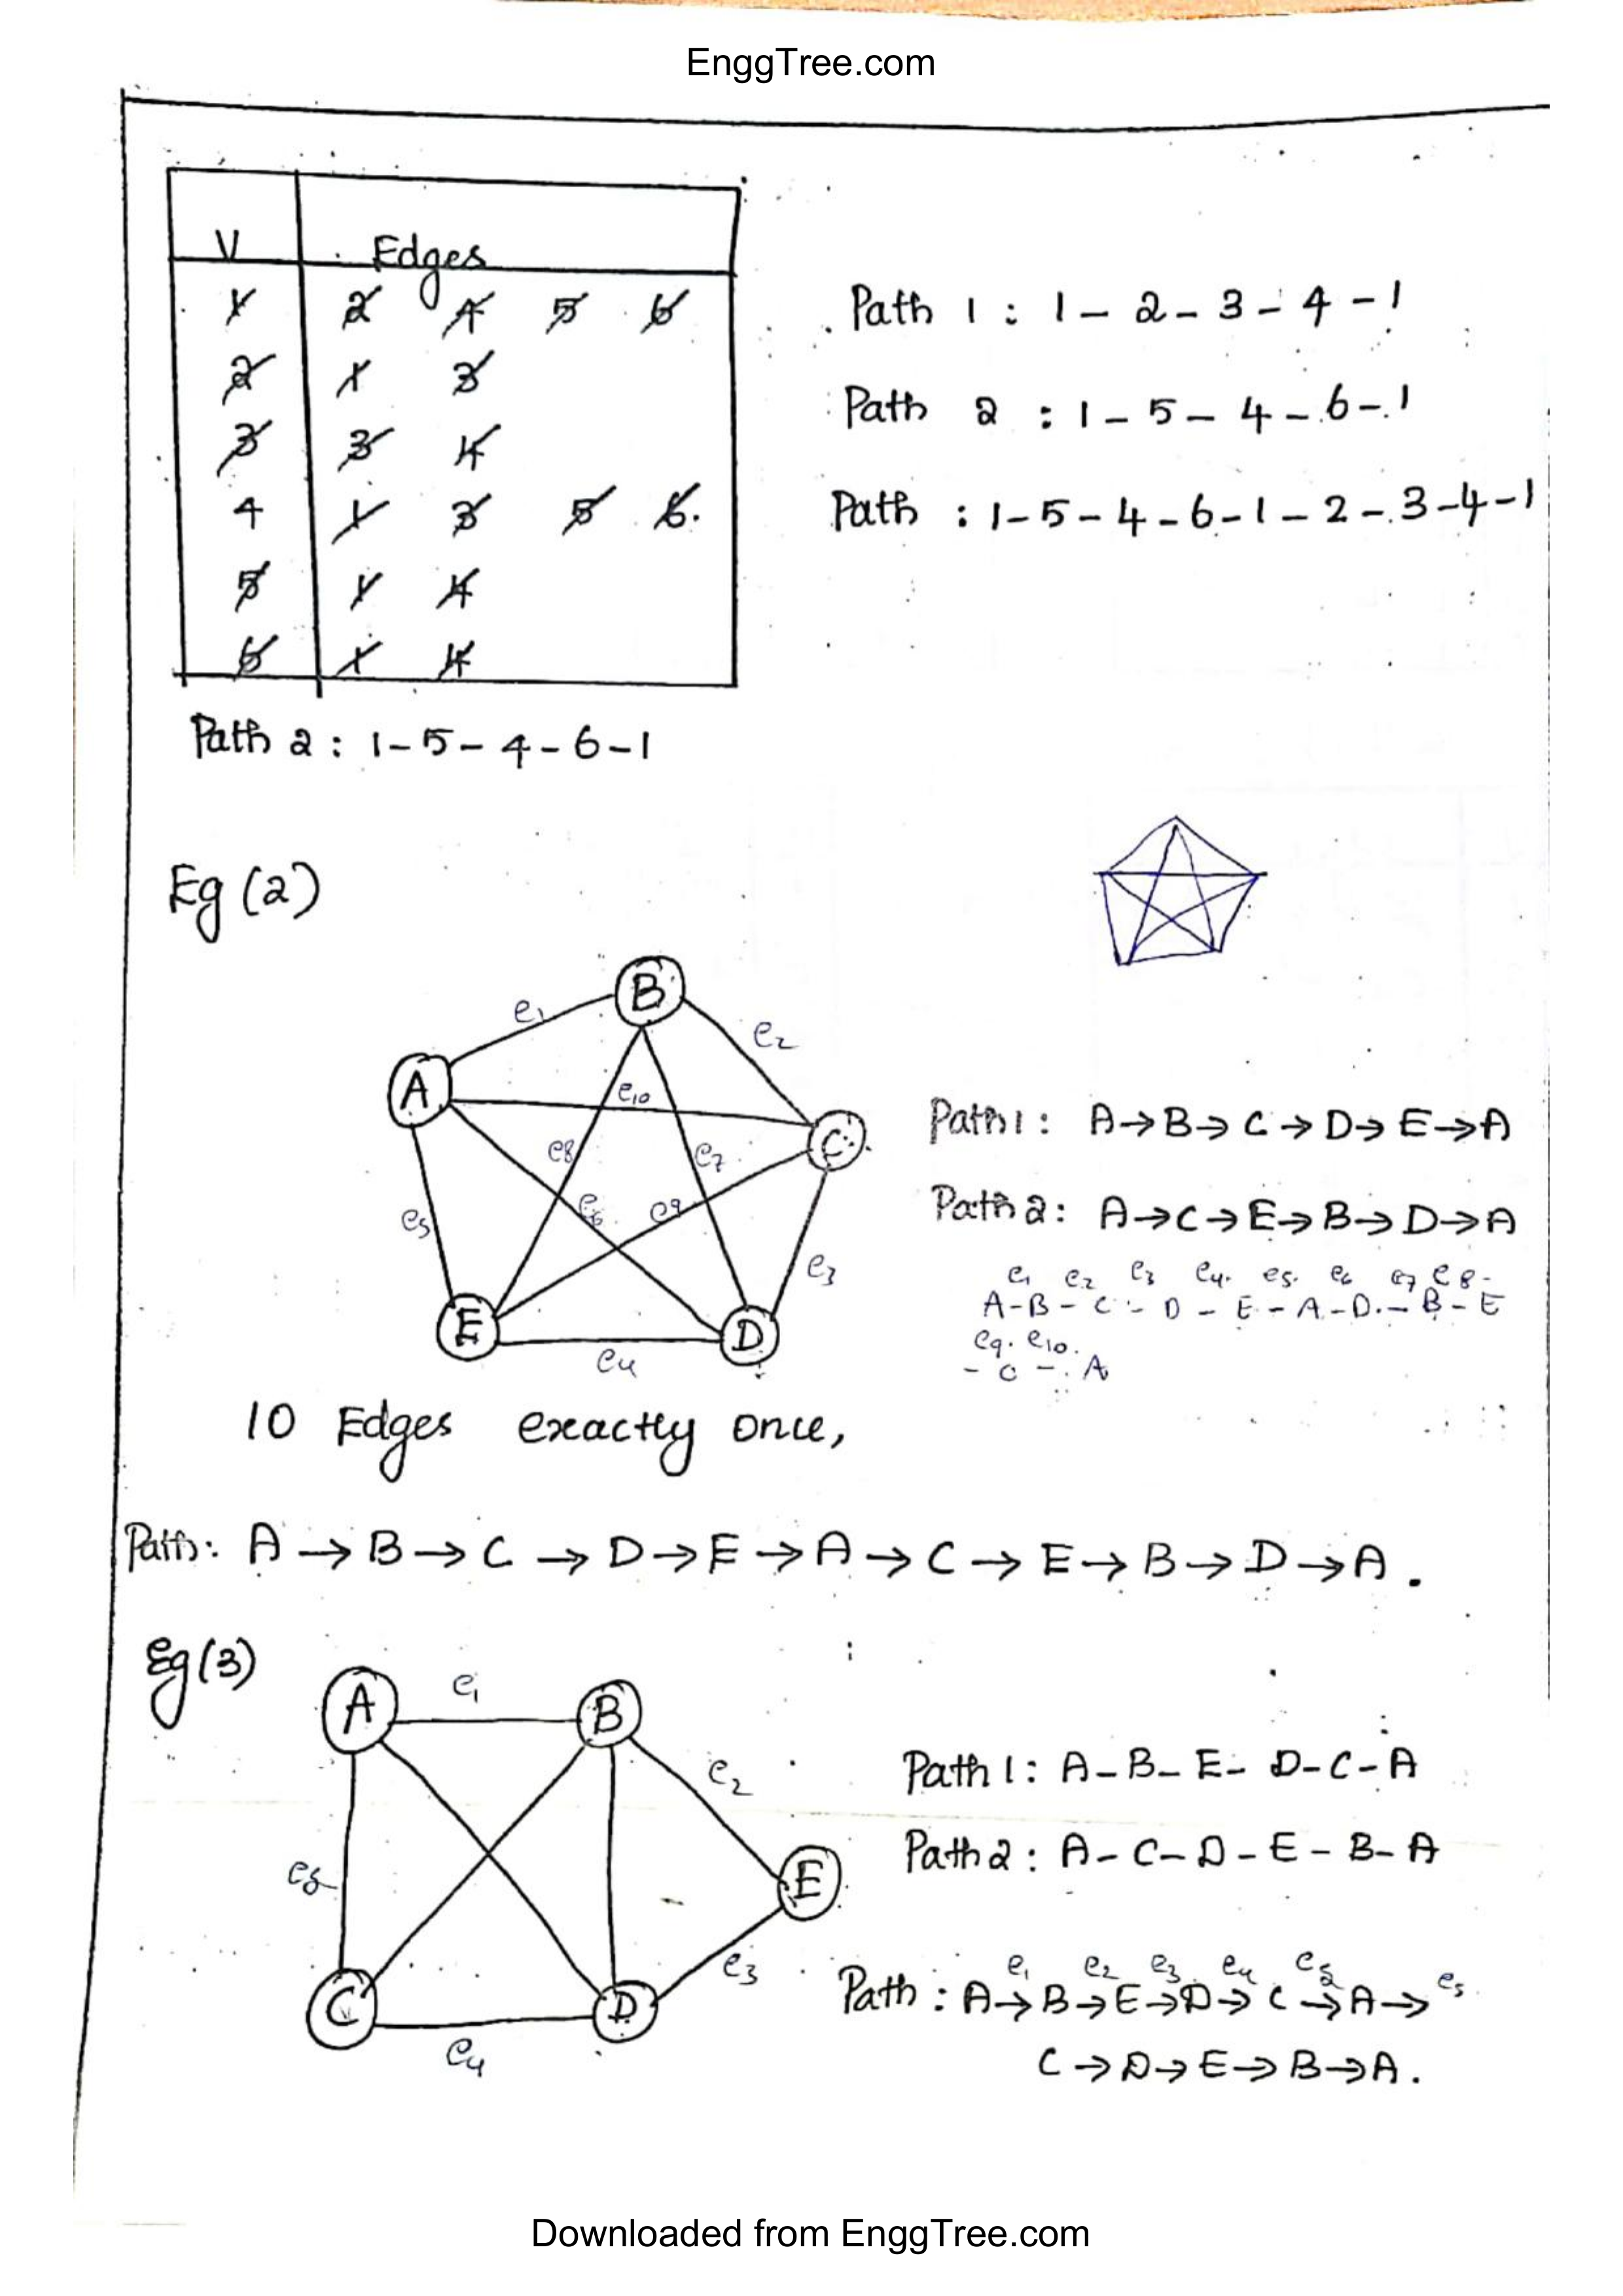 EnggTree.com
V Edges
1 2 4 5 6
2 1 3
3 3 4
4 1 3 5 6.
5 1 4
6 1 4
Path 1 : 1 - 2 - 3 - 4 - 1
Path 2 : 1 - 5 - 4 - 6 - 1
Path : 1 - 5 - 4 - 6 - 1 - 2 - 3 - 4 - 1
Path 2 : 1 - 5 - 4 - 6 - 1
Eg (2)
B
e1
e2
A
e10
C
e8
e7
e5
e6
e9
e3
E
D
e4
Path 1 : A → B → C → D → E → A
Path 2 : A → C → E → B → D → A
e1 e2 e3 e4. e5. e6 e7 e8 -
A - B - C - D - E - A - D. - B - E
e9. e10.
- C - A
10 Edges exactly once,
Path: A → B → C → D → E → A → C → E → B → D → A .
Eg (3)
A
e1
B
e2
e5
E
C
D
e3
e4
Path 1 : A - B - E - D - C - A
Path 2 : A - C - D - E - B - A
e1 e2 e3 e4 e5 e5
Path : A → B → E → D → C → A →
C → D → E → B → A .
Downloaded from EnggTree.com